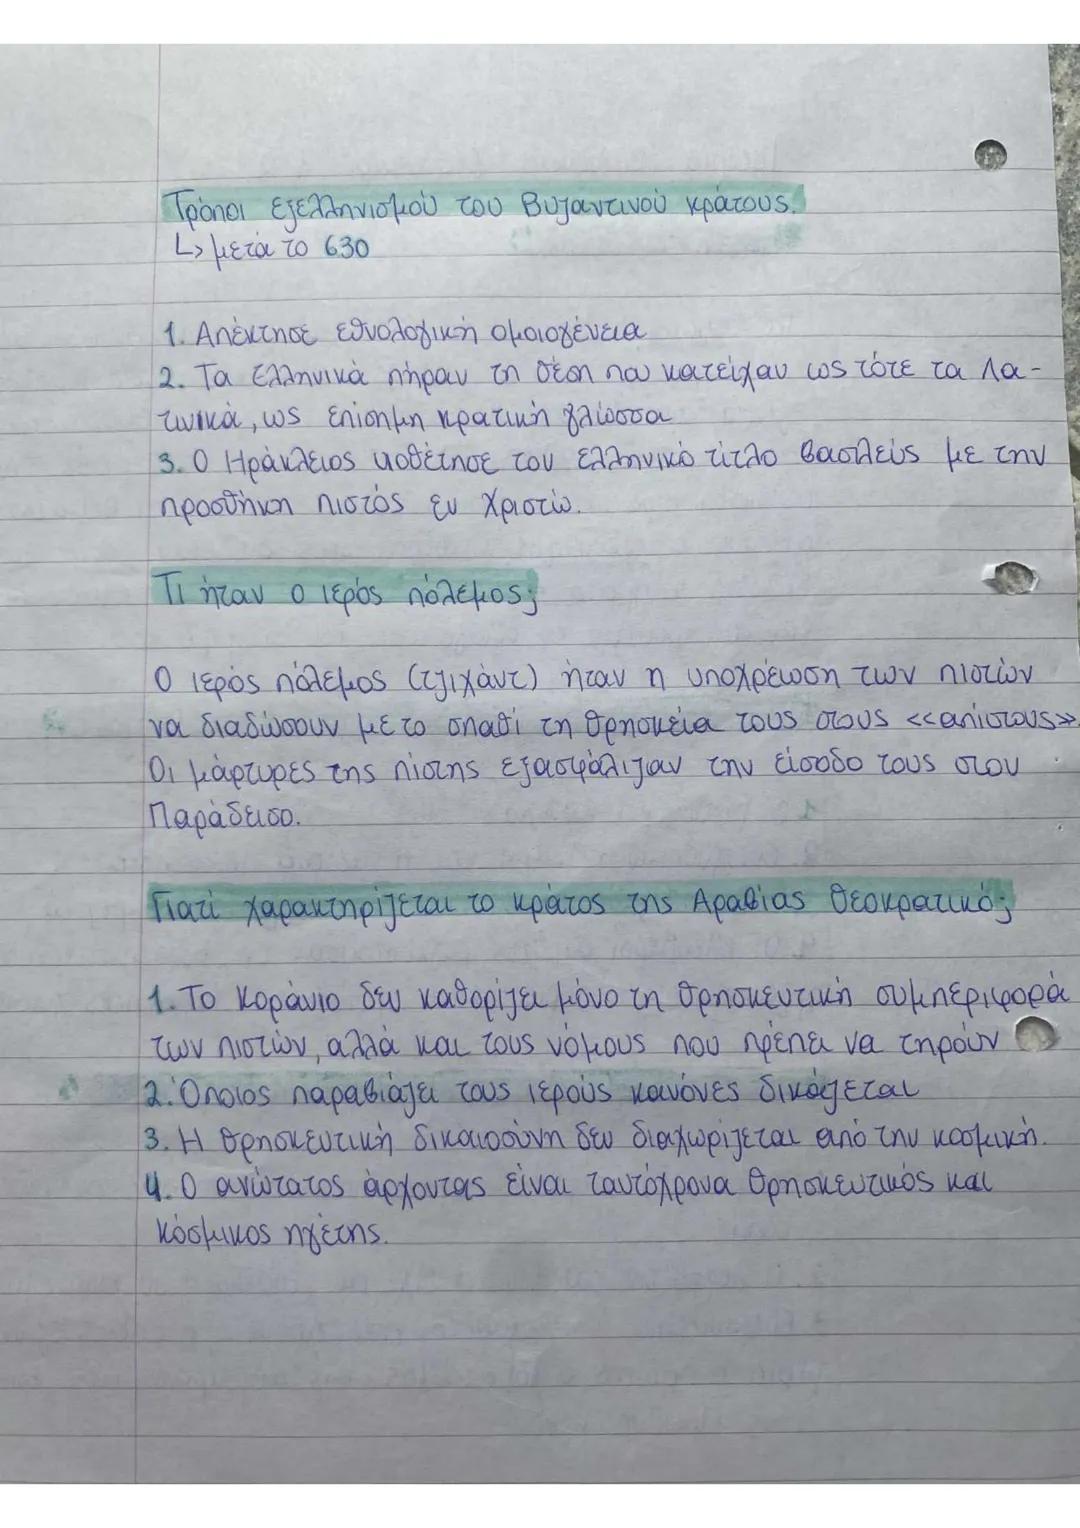 Τρόποι εξελληνισμού του Βυζαντινού κράτους.
↳ μετά το 630
1. Απέκτησε εθνολογική ομοιογένεια
2. Τα ελληνικά πήραν τη θέση που κατείχαν ως τότε τα Λα-
τινικά, ως επίσημη κρατική γλώσσα
3. Ο Ηράκλειος υιοθέτησε τον ελληνικό τίτλο βασιλεύς με την
προσθήκη πιστός εν Χριστώ.
Τι ήταν ο ιερός πόλεμος;
Ο ιερός πόλεμος (τζιχάντ) ήταν η υποχρέωση των πιστών
να διαδώσουν με το σπαθί τη θρησκεία τους στους <<απίστους>>.
Οι μάρτυρες της πίστης εξασφάλιζαν την είσοδο τους στον
Παράδεισο.
Γιατί χαρακτηρίζεται το κράτος της Αραβίας θεοκρατικό;
1. Το Κοράνιο δεν καθορίζει μόνο τη θρησκευτική συμπεριφορά
των πιστών, αλλά και τους νόμους που πρέπει να τηρούν
2. Όποιος παραβιάζει τους ιερούς κανόνες δικάζεται
3. Η θρησκευτική δικαιοσύνη δεν διαχωρίζεται από την κοσμική.
4. Ο ανώτατος άρχοντας είναι ταυτόχρονα θρησκευτικός και
κόσμικος ηγέτης.